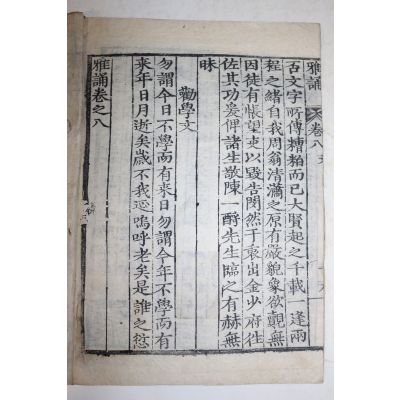 雅誦 卷八
古文字所傳糟粕而已大賢起之千載一逢兩
程之緖自我周翁淸瀟之原有嚴貌象欲觀無
因徒有悵望吏以毁告閔然于衷出金少府往
佐其功爰俾諸生敬陳一酹先生臨之有赫無
昧
勸學文
勿謂今日不學而有來日勿謂今年不學而有
来年日月逝矣歲不我延嗚呼老矣是誰之愆
雅誦卷之八